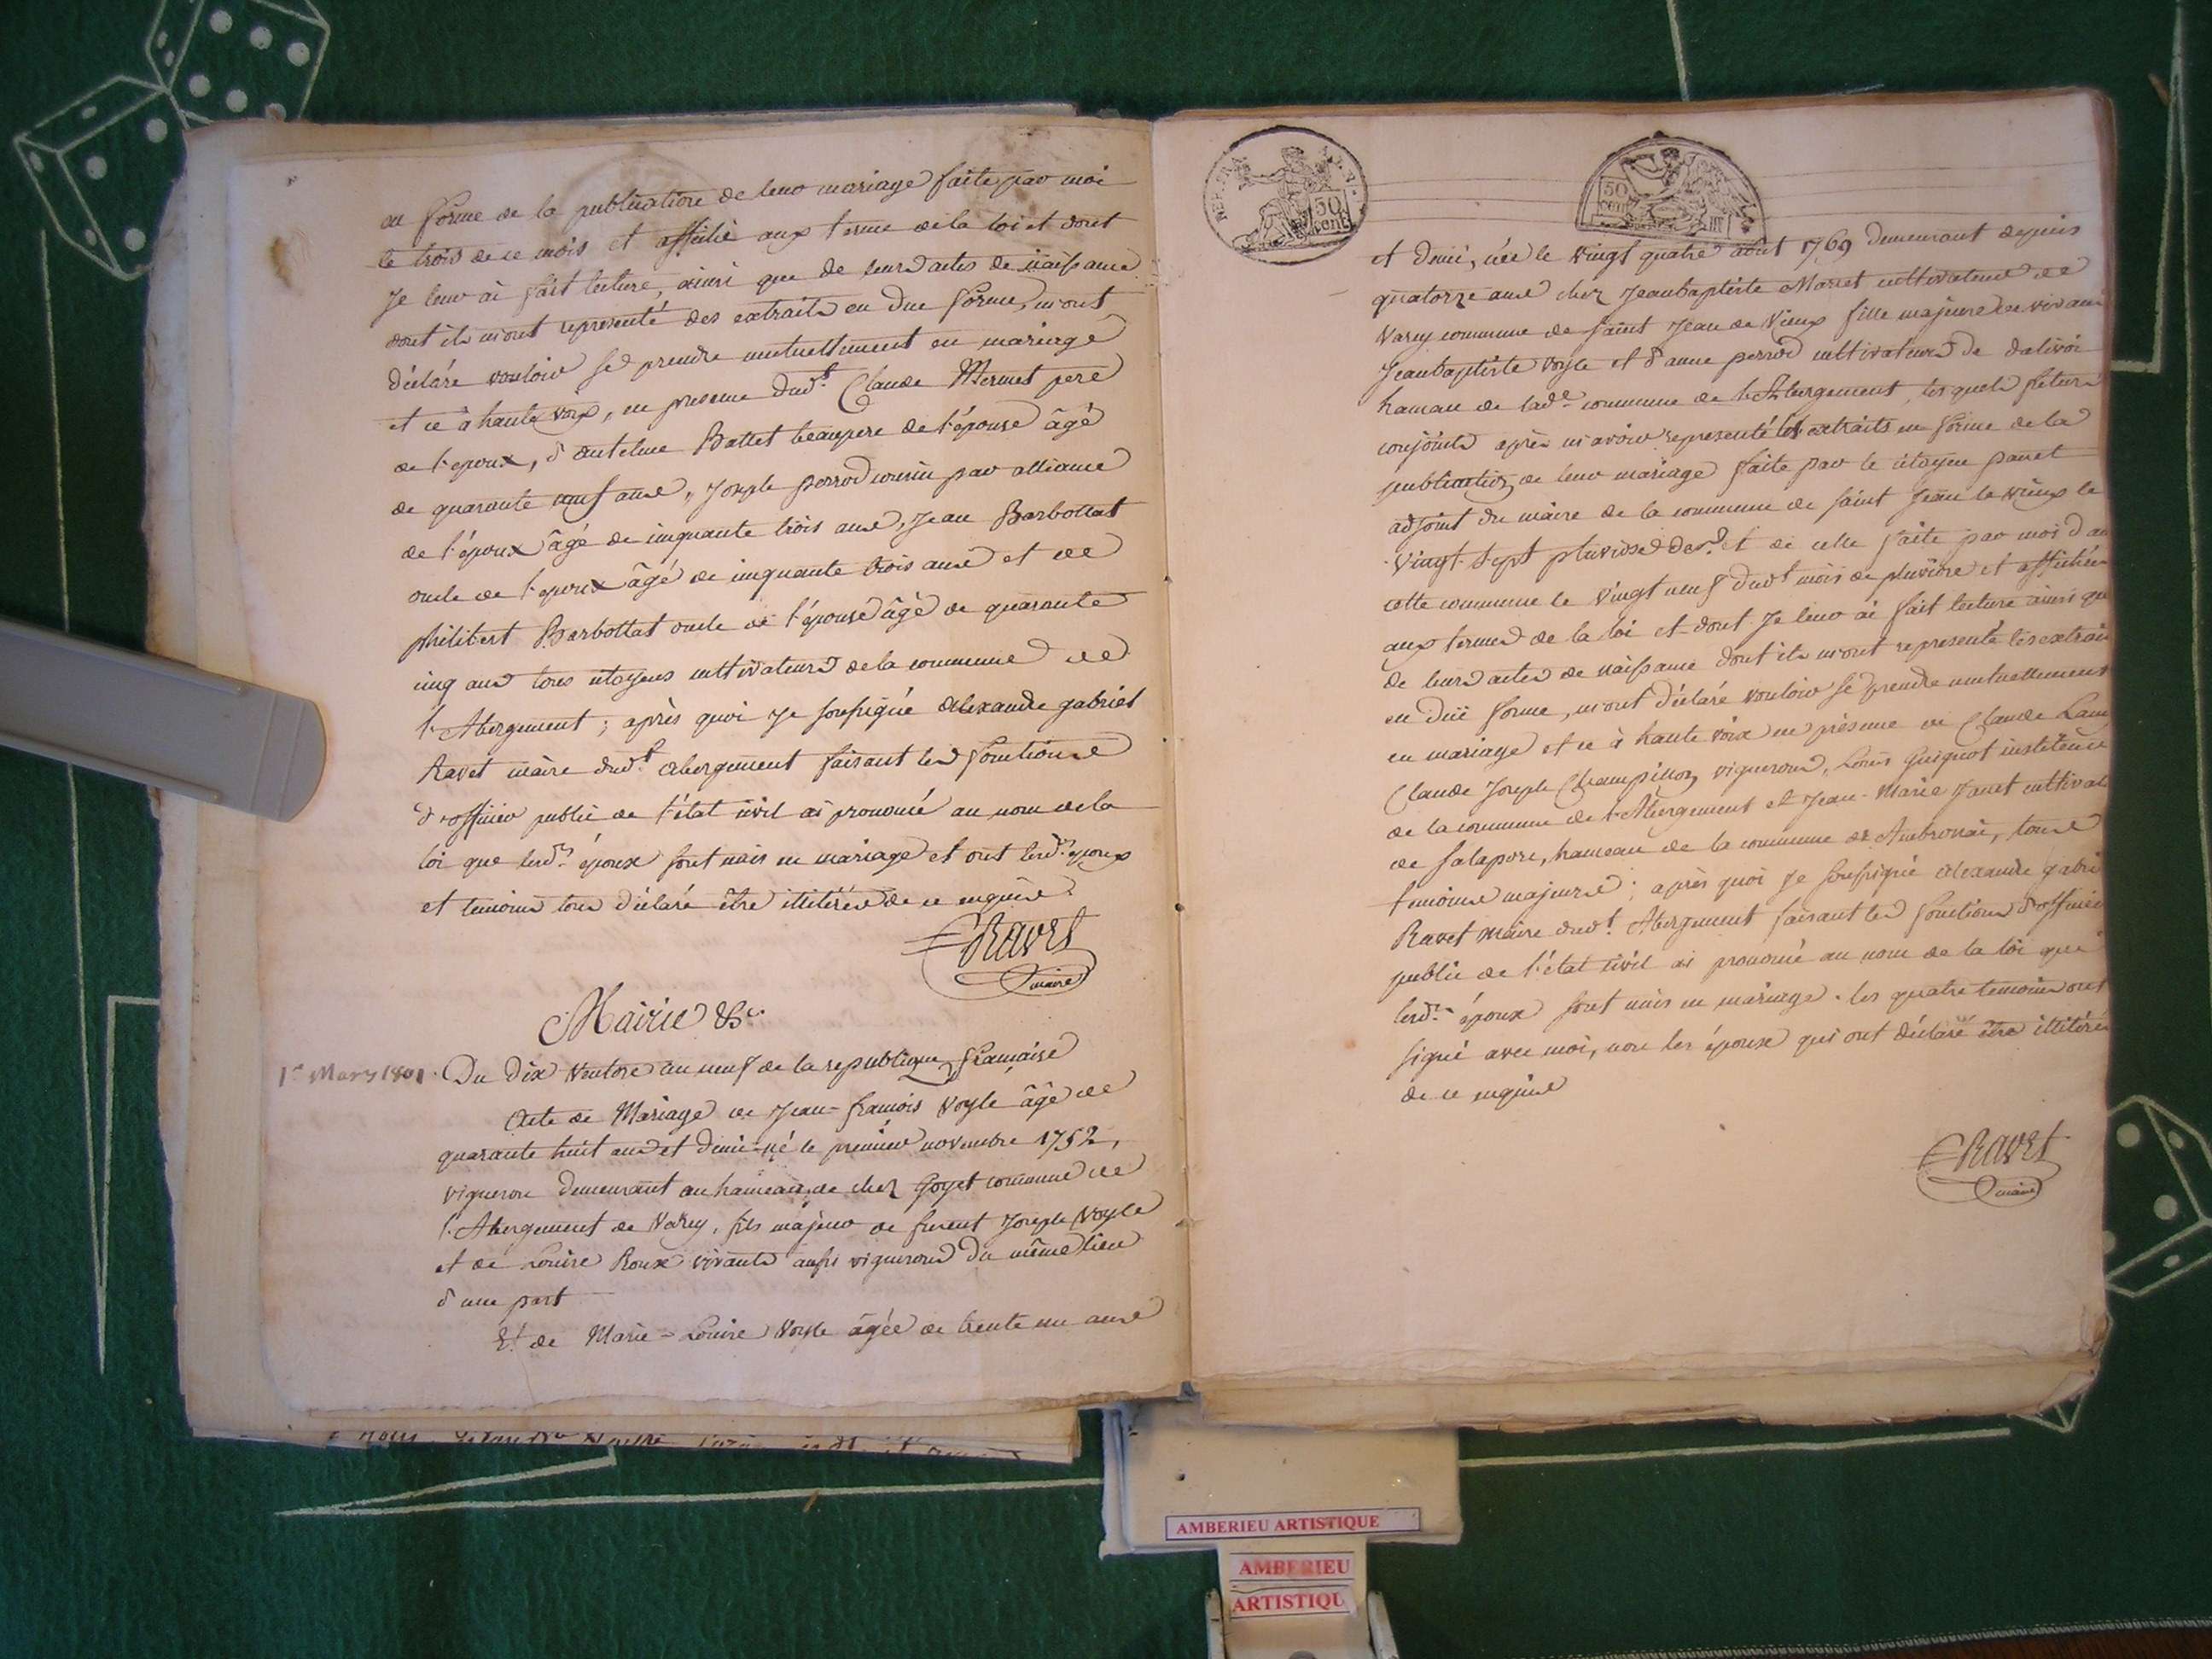 en forme de la publication de leur mariage faite par moi
le trois de ce mois et affiché aux termes de la loi et dont
Je leur ai fait lecture, ainsi que de leurs actes de naissance
dont ils m'ont représenté des extraits en due forme, m'ont
déclaré vouloir se prendre mutuellement en mariage
et ce à haute voix, en presence dud.t Claude Mermet pere
de l'epoux, d'antelme Battet beaupere de l'épouse âgé
de quarante neuf ans, Joseph perrod cousin par alliance
de l'époux âgé de cinquante trois ans, Jean Barbottat
oncle de l'epoux âgé de cinquante trois ans et de
philibert Barbottat oncle de l'épouse âgé de quarante
cinq ans tous citoyens cultivateurs de la commune de
l'Abergement ; après quoi Je soussigné Alexandre gabriel
Ravet maire dud.t abergement faisant les fonctions
d'officier public de l'état civil ai prononcé au nom de la
loi que lesd.ts époux sont unis en mariage et ont lesd.ts époux
et temoins tous déclaré être illitérés de ce enquis.
Ravet
maire
Mairie &c.
1er Mars 1801. Du Dix Ventose an neuf de la republique française
Acte de Mariage de Jean-françois Voyle âgé de
quarante huit ans et demi né le premier novembre 1752,
vigneron demeurant au hameau de chez Goyet commune de
l'Abergement de Varey, fils majeur de furent Joseph Voyle
et de Louise Roux vivants aussi vignerons du même lieu
d'une part
Et de Marie-Louise Voyle âgée de trente un ans
REP. FRA.
50
cent
50
cent
et demi, née le vingt quatre août 1769 demeurant depuis
quatorze ans chez Jeanbaptiste Morset cultivateur de
Varey commune de saint Jean de Vieux fille majeure de vivans
Jeanbaptiste Voyle et d'anne perrod cultivateurs de dalivoi
hameau de lad.e commune de l'Abergement, lesquels futurs
conjoints après m'avoir representé les extraits en forme de la
publication de leur mariage faite par le citoyen panet
adjoint du maire de la commune de saint Jean le vieux le
vingt-sept pluviose der. et de celle faite par moi dans
cette commune le vingt neuf dud.t mois de pluviose et affichées
aux termes de la loi et dont Je leur ai fait lecture ainsi que
de leurs actes de naissance dont ils m'ont representé les extraits
en due forme, m'ont déclaré vouloir se prendre mutuellement
en mariage et ce à haute voix en présence de Claude
Claude Joseph Champillon vignerons, Louis Guignot instituteur
de la commune de l'Abergement et Jean-Marie Janet cultivat
de salaport, hameau de la commune de Ambronai, tous
temoins majeurs ; après quoi Je soussigné Alexandre gabri
Ravet maire dud.t Abergement faisant les fonctions d'officier
public de l'état civil ai prononcé au nom de la loi que
lesd.ts époux sont unis en mariage. les quatre temoins ont
signé avec moi, non les époux qui ont déclaré être illitérés
de ce enquis
Ravet
maire
AMBERIEU ARTISTIQUE
AMBERIEU
ARTISTIQU